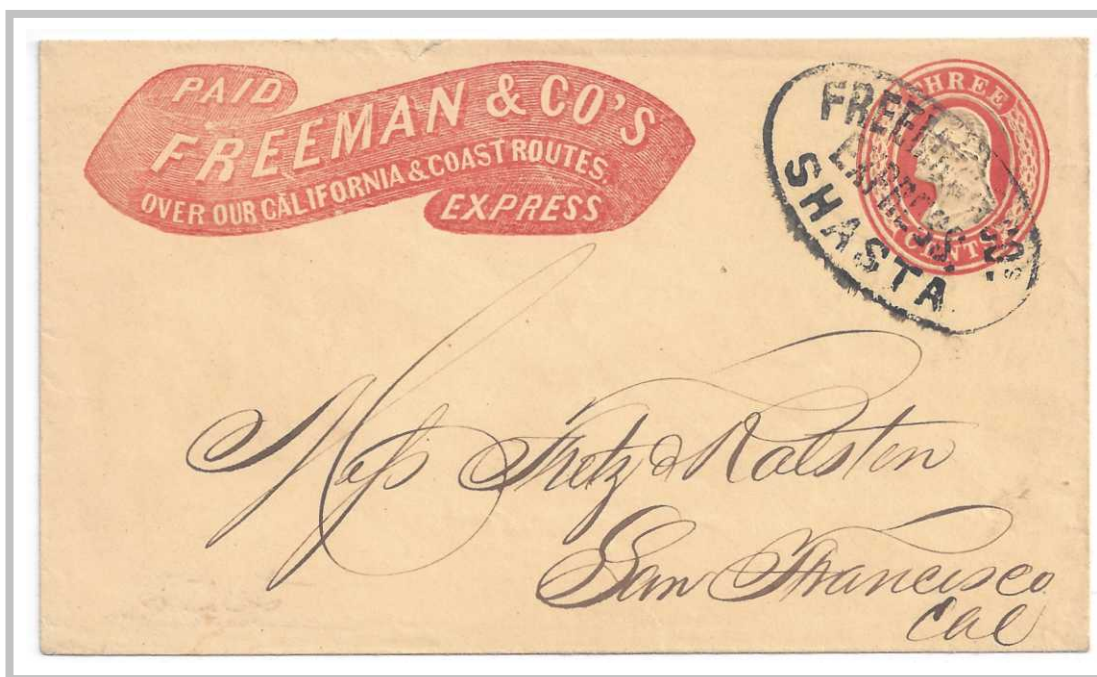 PAID
FREEMAN & CO'S
OVER OUR CALIFORNIA & COAST ROUTES.
EXPRESS
THREE
CENTS
FREEMAN & CO'S
EXPRESS.
SHASTA
Mess Fretz & Ralston
San Francisco
Cal